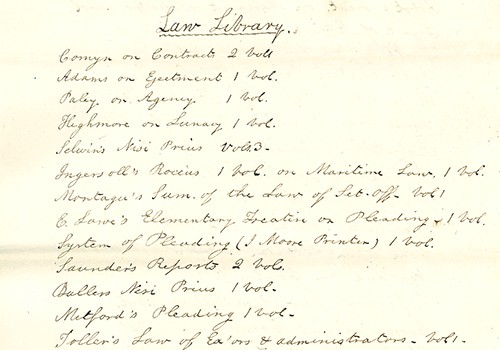 Law Library.
Comyn on Contracts 2 Voll
Adams on Ejectment 1 Vol.
Paley on Agency 1 vol.
Highmore on Lunacy 1 vol.
Selwin's Nisi Prius Vol 3-
Ingersoll's Roccus 1 vol. on Maritime Law. 1 vol.
Montagu's Sum. of the Law of Set. off- Vol 1
E. Lawe's Elementary Treatise on Pleading - 1 Vol.
System of Pleading (I Moore Printer) 1 vol.
Saunder's Reports 2 Vol.
Bullers Nisi Prius 1 vol.
Mitford's Pleading 1 Vol-
Toller's Law of Ex'ors & administrators - Vol 1-